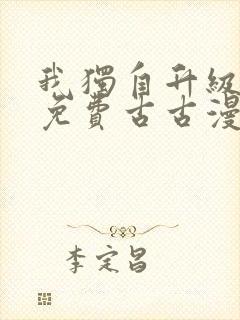 我獨自升級
免費古古漫
李定昌